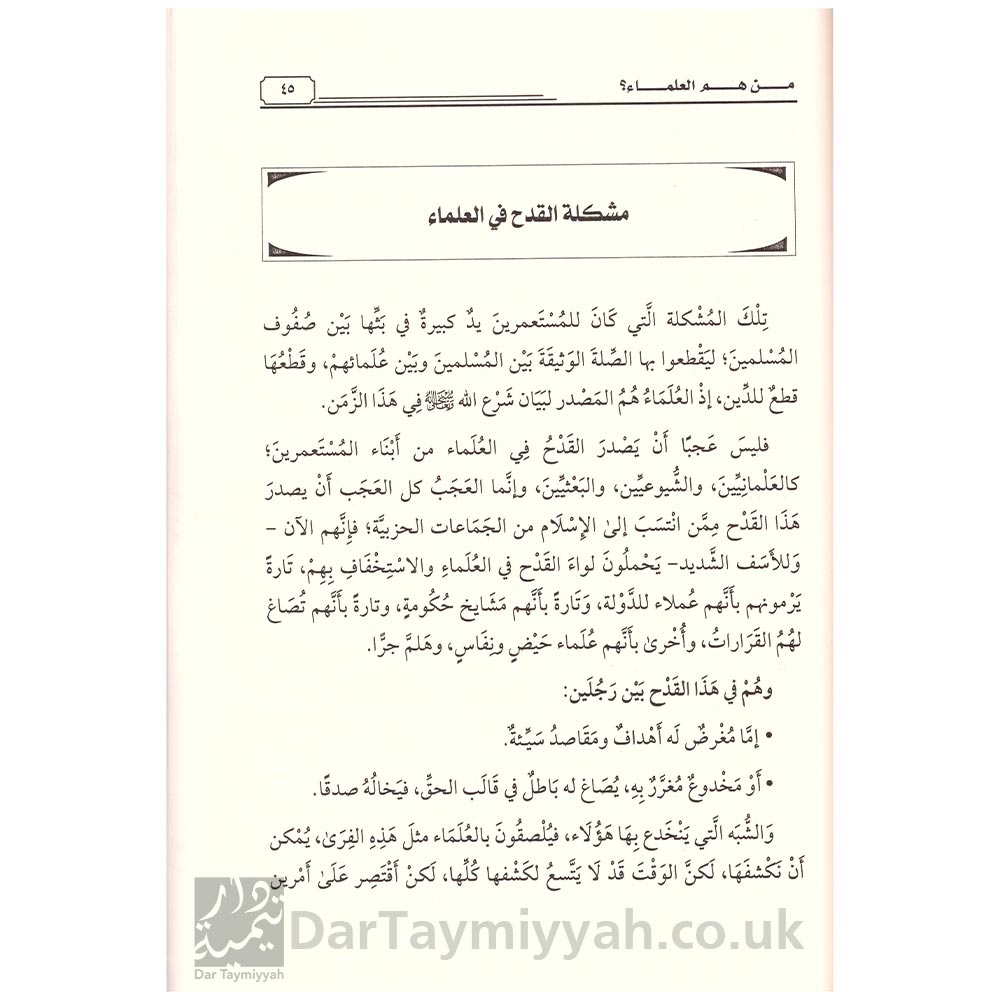 مـــن هـــم العلمـــاء؟
٤٥
مشكلة القدح في العلماء
تِلْكَ المُشْكلة الَّتي كَانَ للمُسْتَعمرينَ يدٌ كبيرةٌ في بَثِّها بَيْن صُفُوف
المُسْلمينَ؛ ليَقْطعوا بها الصِّلةَ الوَثيقَةَ بَيْن المُسْلمينَ وبَيْن عُلَمائهمْ، وقَطْعُهَا
قطعٌ للدِّين، إذْ العُلَمَاءُ هُمُ المَصْدر لبَيَان شَرْع الله ﷻ فِي هَذَا الزَّمَن.
فليسَ عَجبًا أَنْ يَصْدرَ القَدْحُ فِي العُلَماء من أَبْنَاء المُسْتَعمرينَ؛
كالعَلْمانِيِّينَ، والشُّيوعيِّين، والبَعْثيِّينَ، وإنَّما العَجَبُ كل العَجَب أَنْ يصدرَ
هَذَا القَدْح مِمَّن انْتسَبَ إلىٰ الإسْلَام من الجَمَاعات الحزبيَّة؛ فإنَّهم الآن -
وَللأَسَف الشَّديد- يَحْملُونَ لواءَ القَدْح في العُلَماءِ والاسْتِخْفَافِ بِهِمْ، تَارةً
يَرْمونهم بأنَّهم عُملاء للدَّوْلة، وَتَارةً بأَنَّهم مَشَايخ حُكُومةٍ، وتارةً بأَنَّهم تُصَاغ
لهُمُ القَرَاراتُ، وأُخْرىٰ بأَنَّهم عُلَماء حَيْضٍ ونِفَاسٍ، وهَلمَّ جرًّا.
وهُمْ في هَذَا القَدْح بَيْن رَجُلَين:
• إمَّا مُغْرضٌ لَه أَهْدافٌ ومَقَاصدُ سَيِّئةٌ.
• أَوْ مَخْدوعٌ مُغَرَّرٌ بِهِ، يُصَاغ له بَاطلٌ في قَالَب الحقِّ، فيَخالُهُ صدقًا.
وَالشُّبَه الَّتي يَنْخَدع بِهَا هَؤُلَاء، فيُلْصقُونَ بالعُلَمَاء مثلَ هَذِهِ الفِرَىٰ، يُمْكن
أَنْ نَكْشفَهَا، لَكنَّ الوَقْتَ قَدْ لَا يَتَّسعُ لكَشْفها كُلِّها، لَكنْ أَقْتَصِر عَلَىٰ أَمْرين
دار تيمية
Dar Taymiyyah
DarTaymiyyah.co.uk